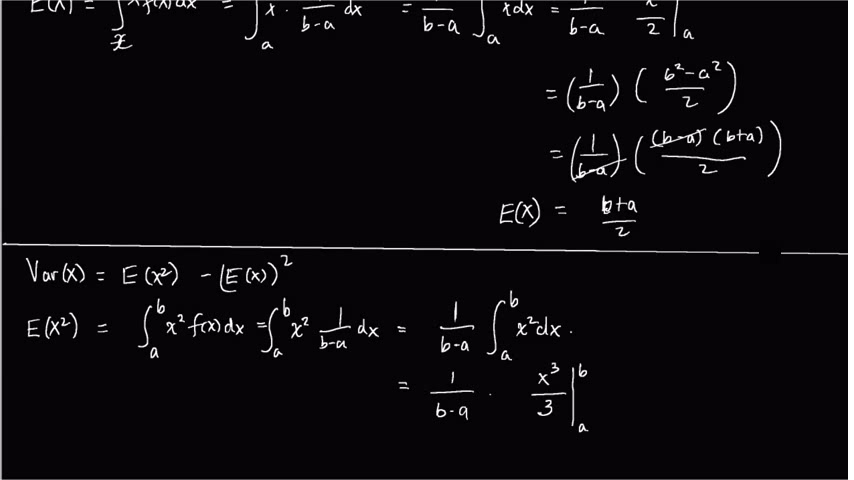 E(X) = ∫ x f(x) dx = ∫_a x · 1/(b-a) dx = 1/(b-a) ∫_a x dx = 1/(b-a) x/2 |_a
= (1/(b-a)) ((b²-a²)/2)
= (1/(b-a)) ((b-a)(b+a)/2)
E(X) = (b+a)/2
Var(x) = E(x²) - (E(x))²
E(x²) = ∫_a^b x² f(x) dx = ∫_a^b x² 1/(b-a) dx = 1/(b-a) ∫_a^b x² dx.
= 1/(b-a) · x³/3 |_a^b